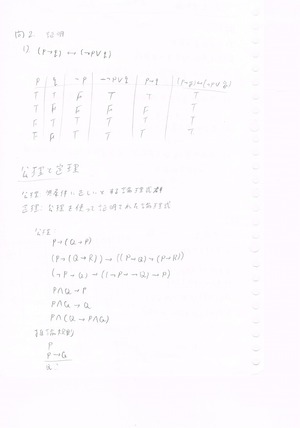 問2 証明
1) (P→q) ↔ (¬P∨q)
P q ¬P ¬P∨q P→q (P→q)↔(¬P∨q)
T T F T T T
T F F F F T
F T T T T T
F F T T T T
公理と定理
公理: 無条件に正しいとする論理式
定理: 公理を使って証明された論理式
公理
P→(Q→P)
(P→(Q→R))→((P→Q)→(P→R))
(¬P→Q)→((¬P→¬Q)→P)
P∧Q→P
P∧Q→Q
P→(Q→P∧Q)
推論規則
P
P→Q